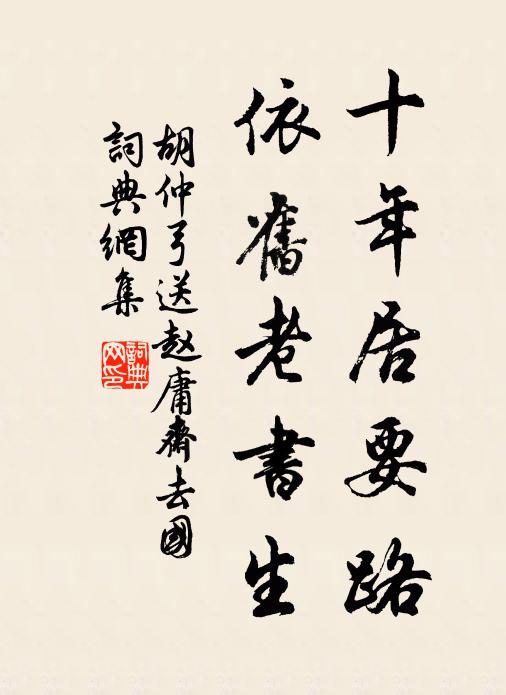 十年居要路
依舊老書生
胡仲弓送赵庸齋去國
詞典網集
詞典網印